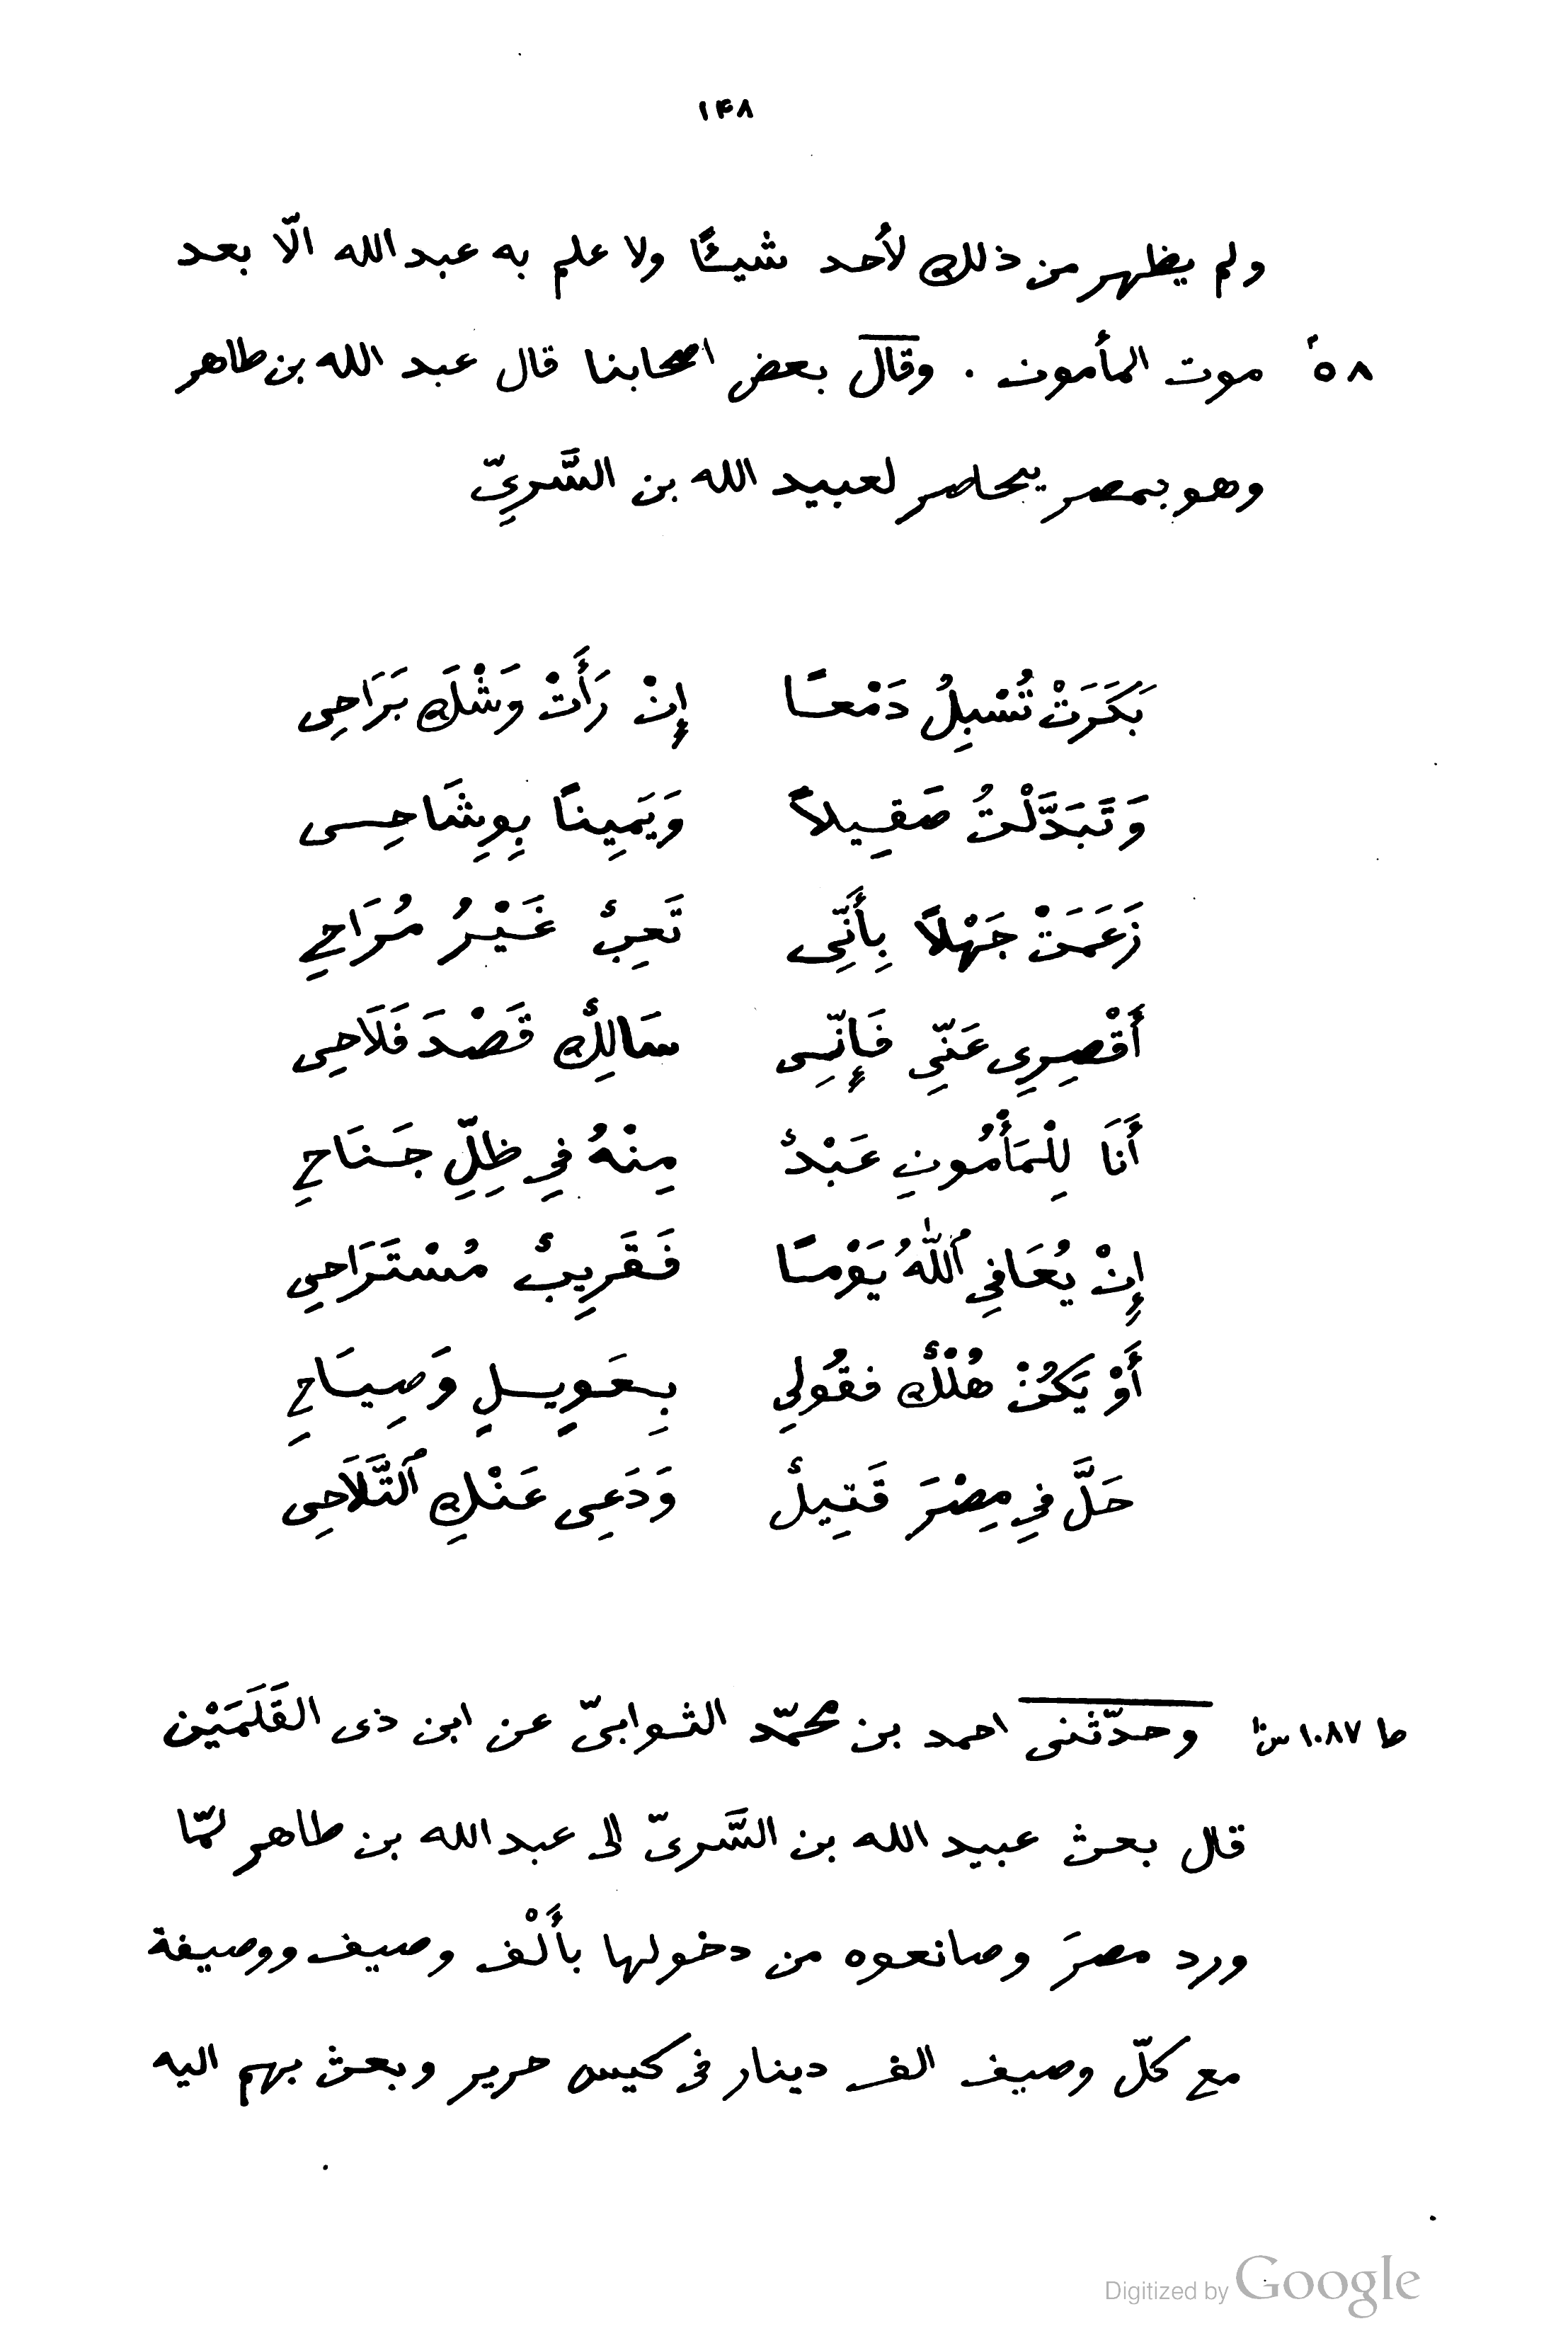 ١۴٨
ولم يظهر من ذلك لأحد شيئًا ولا علم به عبد الله الّا بعد
٥٨ موت المأمون . وقال بعض اصحابنا قال عبد الله بن طاهر
وهو بمصر يحاصر لعبيد الله بن السَّرِيّ
بَكَرَتْ تُسْبِلُ دَمْعًا إِنْ رَأَتْ وَشْكَ بَرَاحِى
وَتَبَدَّلْتُ صَقِيلاً وَيَمِينًا بِوِشَاحِى
زَعَمَتْ جَهْلاً بِأَنِّى تَعِبٌ غَيْرُ مُرَاحِ
أَقْصِرِى عَنِّى فَإِنِّى سَالِكٌ قَصْدَ فَلَاحِى
أَنَا لِلْمَأْمُونِ عَبْدٌ مِنْهُ فِي ظِلِّ جَنَاحِ
إِنْ يُعَافِي ٱللّٰهُ يَوْمًا فَقَرِيبٌ مُسْتَرَاحِى
أَوْ يَكُنْ هُلْكٌ فقُولِي بِعَوِيلٍ وَصِيَاحِ
حَلَّ فِي مِصْرَ قَتِيلٌ وَدَعِى عَنْكِ ٱلتَّلَاحِى
ط ١٠٨٧ س وحدّثنى احمد بن محمّد الثوابىّ عن ابن ذى القَلَمَيْن
قال بعث عبيد الله بن السَّرىّ الى عبد الله بن طاهر لمّا
ورد مصرَ وصانعوه من دخولها بأَلْف وصيف ووصيفة
مع كلّ وصيف الف دينار فى كيس حرير وبعث بهم اليه
Digitized by Google